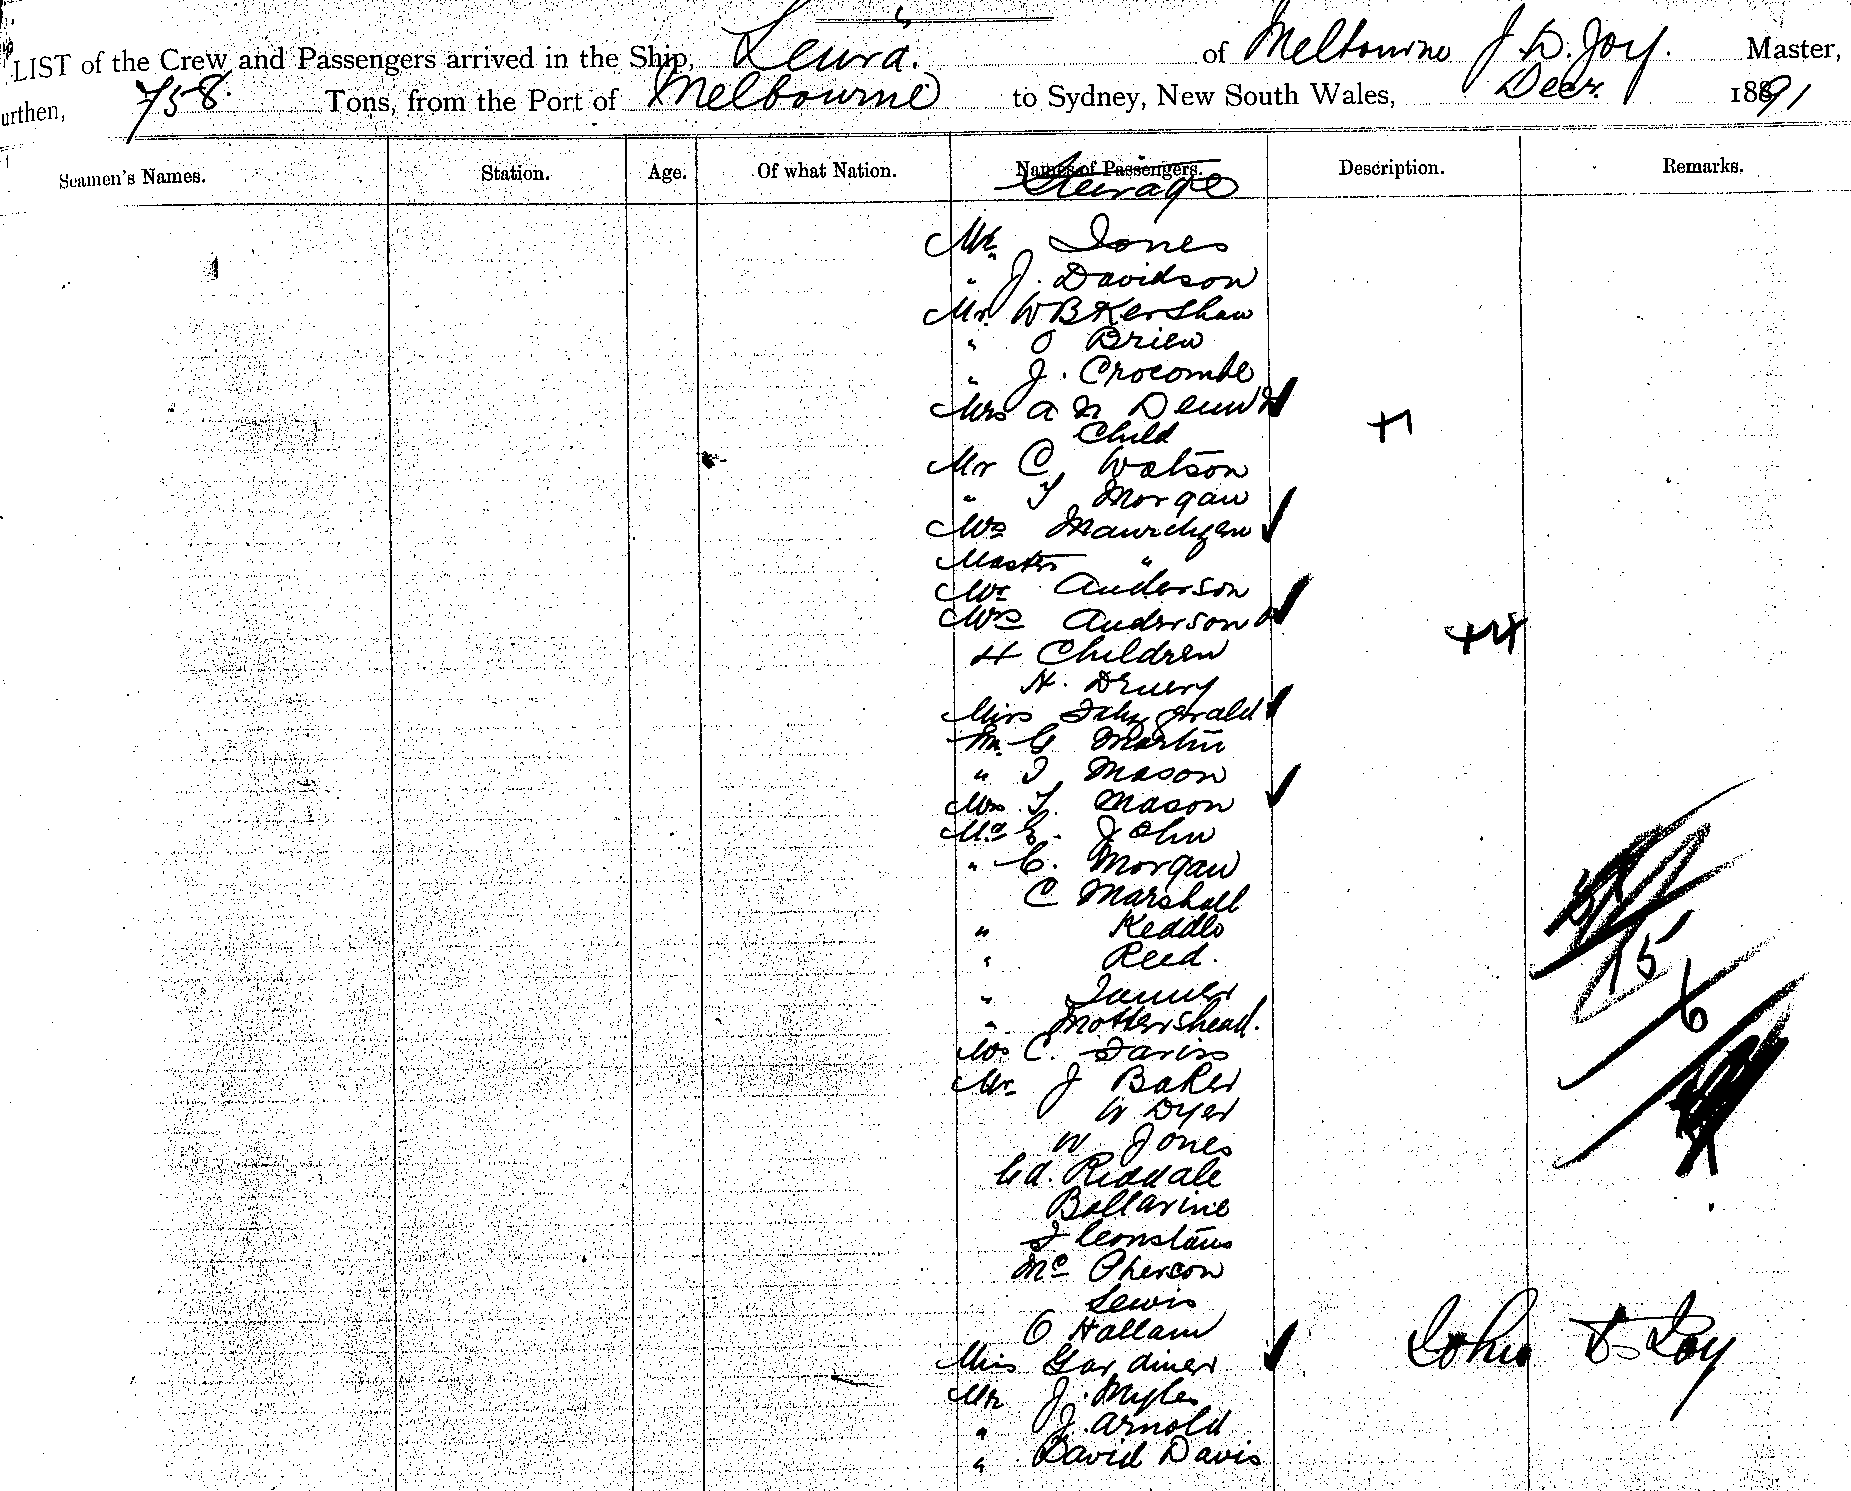 LIST of the Crew and Passengers arrived in the Ship, Leura. of Melbourne J. D. Joy. Master,
urthen, 758. Tons, from the Port of Melbourne to Sydney, New South Wales, Decr. 1891
Seamen's Names. Station. Age. Of what Nation. Names of Passengers. Description. Remarks.
Steerage
Mr. Jones
" J. Davidson
Mr. W B Kershaw
" O Brien
" J. Crocombe
Mrs A N
Child +1
Mr C. Watson
" T Morgan
Mrs
Master "
Mr Anderson
Mrs Anderson &
4 Children +4
H. Druery
Miss Fitzgerald
Mr. G Martin
" T Mason
Mrs T. Mason
Mr E. John
" C. Morgan
C Marshall
" Reed.
" Mottershead.
Mr. J Baker
W Dyer
W Jones
15
6
Ballarine
Mc Pherson
Lewis
O Hallam
Miss Gardiner
John D. Joy
Mr J. Myles
" J. Arnold
" David Davis